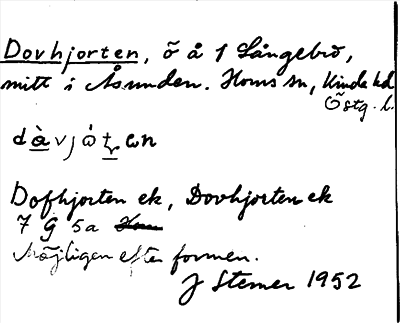 Dovhjorten, ö å 1 Långebro,
mitt i Åsunden. Horns sn, Kinda hd
Östg. l.
Dofhjorten ek, Dovhjorten ek
7 G 5a
Möjligen efter formen.
J Sterner 1952